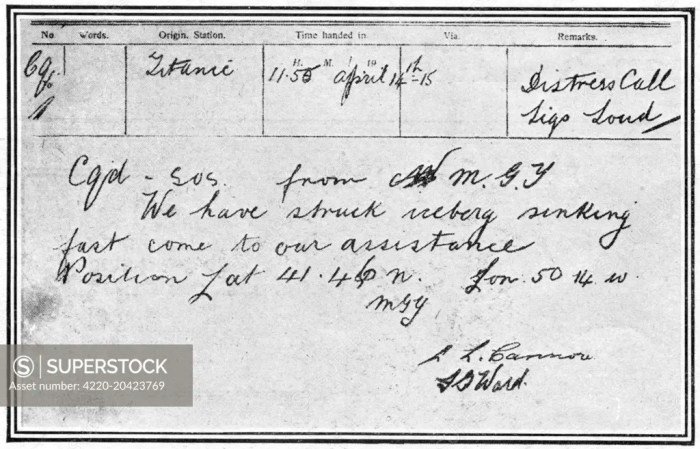 No. Words. Origin. Station. Time handed in Via. Remarks.
H. M. 19
Titanic 11.55 April 14th-15 Distress Call
Sigs Loud
Cqd - SOS. from M.G.Y
We have struck iceberg sinking
fast come to our assistance
Position Lat 41.46 n. Lon. 50 14 w.
MGY
L. Cannon
Ward.
SUPERSTOCK
Asset number: 4220-20423769